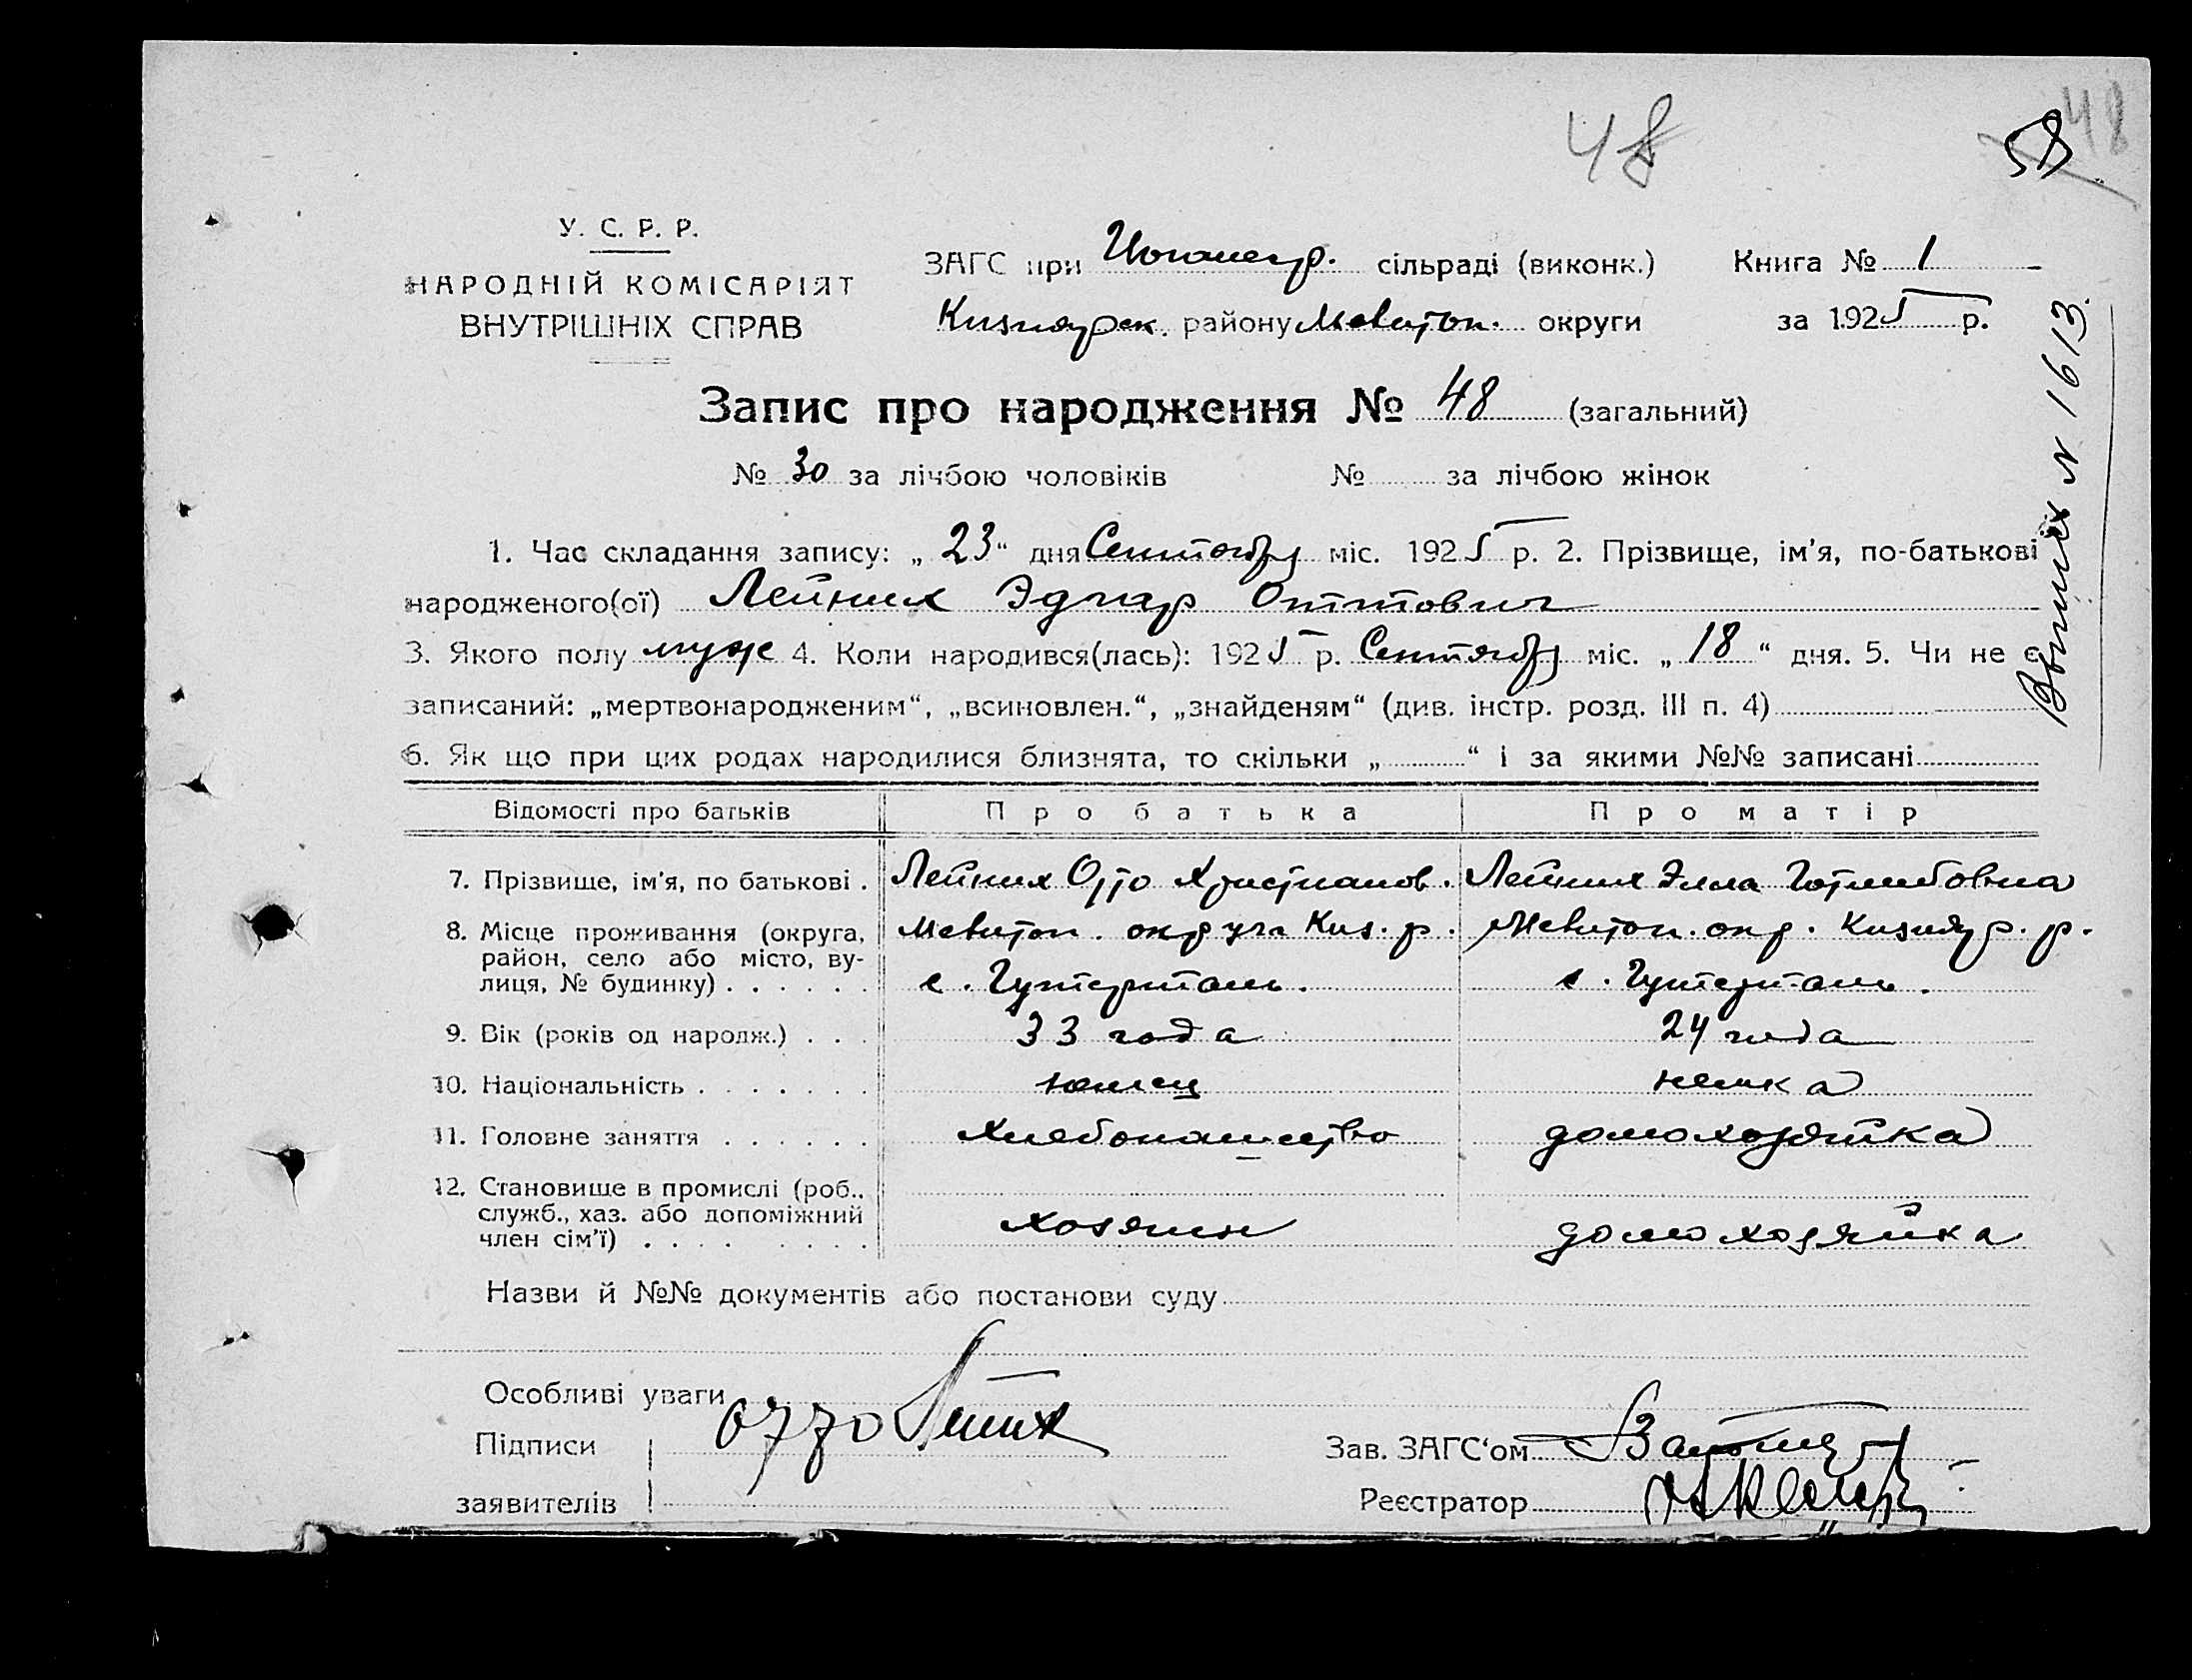 48
58
48
У. С. Р. Р.
НАРОДНІЙ КОМІСАРІЯТ
ВНУТРІШНІХ СПРАВ
ЗАГС при сільраді (виконк.) Книга № 1
району Мелитоп. округи за 1925 р.
Запис про народження № 48 (загальний)
№ 30 за лічбою чоловіків № за лічбою жінок
1. Час складання запису: „ 23 “ дня Сентября міс. 1925 р. 2. Прізвище, ім'я, по-батькові
народженого(ої) Лейних Эдгар Оттович
3. Якого полу муж 4. Коли народився(лась): 1925 р. Сентября міс. „ 18 “ дня. 5. Чи не є
записаний: „мертвонародженим“, „всиновлен.“, „знайденям“ (див. інстр. розд. III п. 4)
6. Як що при цих родах народилися близнята, то скільки „ “ і за якими №№ записані
Відомості про батьків Про батька Про матір
7. Прізвище, ім'я, по батькові . Лейних Отто Христианов. Лейних Элла Готлибовна
8. Місце проживання (округа, Мелитоп. округа Киз. р. Мелитоп. окр. Кизияр. р.
район, село або місто, ву-
лиця, № будинку) . . . . . . с. Гутерталь. с. Гутерталь.
9. Вік (років од народж.) . . . 33 года 24 года
10. Національність . . . . . . . немец немка
11. Головне заняття . . . . . . Хлебопашество домохозяйка
12. Становище в промислі (роб.,
служб., хаз. або допоміжний
член сім'ї) . . . . . . . . хозяин домохозяйка
Назви й №№ документів або постанови суду
Особливі уваги
Підписи Отто Лейних Зав. ЗАГС'ом
заявителів Реєстратор
N 1613.